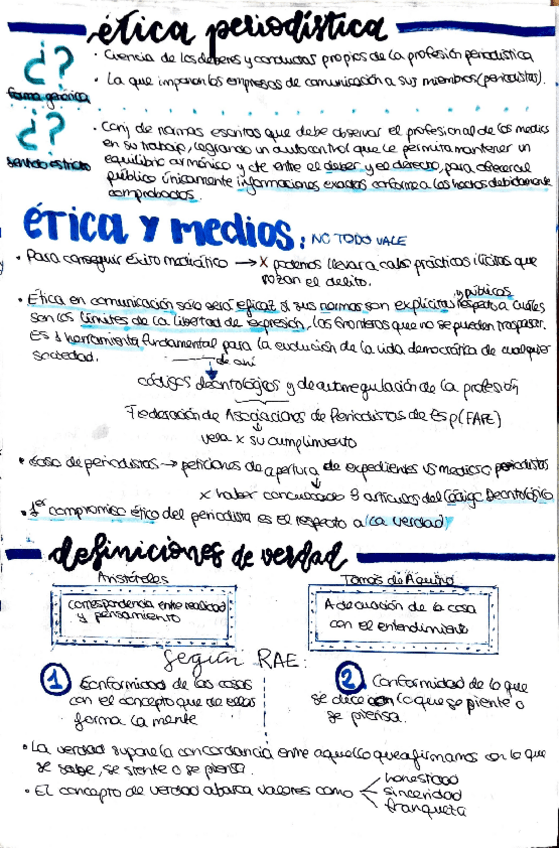 ética periodística
¿?
forma genérica
· Ciencia de los deberes y conductas propios de la profesión periodística
· La que imponen los empresas de comunicación a sus miembros (periodistas).
¿?
sentido estricto
· Conj de normas escritas que debe observar el profesional de los medios
en su trabajo, logrando un autocontrol que le permita mantener un
equilibrio armónico y cte entre el deber y el derecho, para ofrecer al
público únicamente informaciones exactas conforme a los hechos debidamente
comprobados.
ÉTICA Y MEDIOS: NO TODO VALE
· Para conseguir éxito mediático → X podemos llevar a cabo prácticas ilícitas que
rozan el delito.
· Ética en comunicación sólo será eficaz si sus normas son explícitas y públicas respecto a cuáles
son los límites de la libertad de expresión, las fronteras que no se pueden traspasar.
Es 1 herramienta fundamental para la evolución de la vida democrática de cualquier
sociedad.
de ahí
códigos deontológicos y de autorregulación de la profesión
Federación de Asociaciones de Periodistas de Esp (FAPE)
vela x su cumplimiento
· de periodistas → peticiones de apertura de expedientes vs medios o periodistas
x haber 9 artículos del Código Deontológico
· 1er compromiso ético del periodista es el respeto a la verdad
definiciones de verdad
Aristóteles
Tomás de Aquino
correspondencia entre realidad
y pensamiento
Adecuación de la cosa
con el entendimiento
Según RAE:
1 Conformidad de las cosas
con el concepto que de ellas
forma la mente
2 Conformidad de lo que
se dice con lo que se siente o
se piensa.
· La verdad supone la concordancia entre aquello que afirmamos con lo que
se sabe, se siente o se piensa.
· El concepto de verdad abarca valores como
honestidad
sinceridad
franqueza